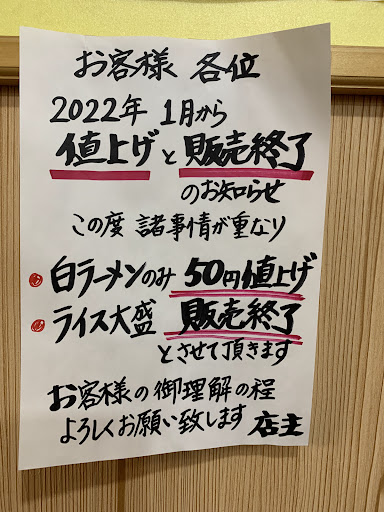 お客様 各位
2022年 1月から
値上げと販売終了
のお知らせ
この度 諸事情が重なり
白ラーメンのみ 50円値上げ
ライス大盛 販売終了
とさせて頂きます
お客様の御理解の程
よろしくお願い致します 店主